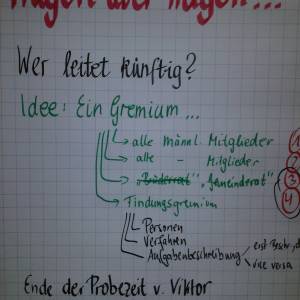 Fragen über Fragen...
Wer leitet künftig?
Idee: Ein Gremium...
alle männl. Mitglieder 1
alle – Mitglieder 2
"Brüderrat" "Gemeinderat" 3
Findungsgremium 4
Personen
Verfahren
Aufgabenbeschreibung erst Beschr.
vice versa
Ende der Probezeit v. Viktor